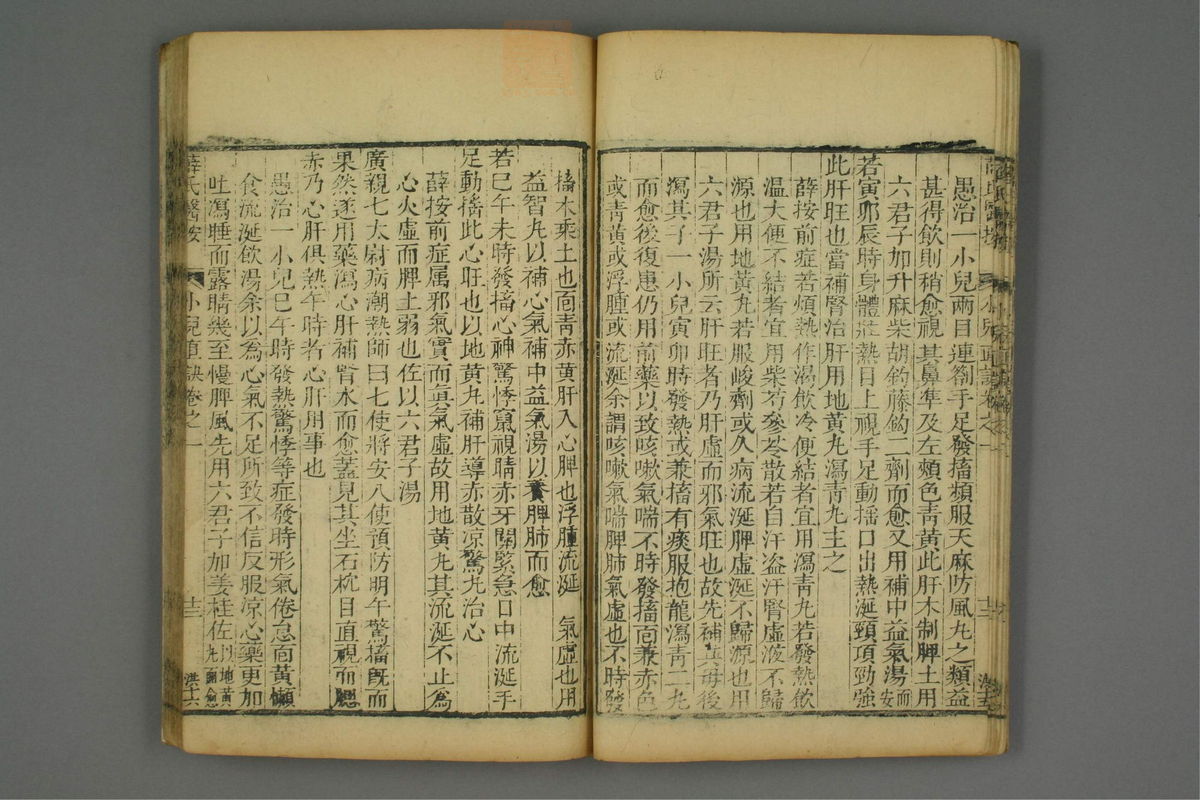 愚治一小兒兩目連劄手足發搐頻服天麻防風丸之類益
甚得飲則稍愈視其鼻準及左頰色青黃此肝木制脾土用
六君子加升麻柴胡鈎藤鈎二劑而愈又用補中益氣湯而安
若寅卯辰時身體壯熱目上視手足動搖口出熱涎頸項勁強
此肝旺也當補腎治肝用地黃丸瀉青丸主之
薛按前症若煩熱作渴飲冷便結者宜用瀉青丸若發熱飲
温大便不結者宜用柴芍參苓散若自汗盗汗腎虛液不歸
源也用地黃丸若服峻劑或久病流涎脾虛涎不歸源也用
六君子湯所云肝旺者乃肝虛而邪氣旺也故先補其母後
瀉其子一小兒寅卯時發熱或兼搐有痰服抱龍瀉青二丸
而愈後復患仍用前藥以致咳嗽氣喘不時發搐面兼赤色
或青黃或浮腫或流涎余謂咳嗽氣喘脾肺氣虛也不時發
搐木乘土也面青赤黃肝入心脾也浮腫流涎氣虛也用
益智丸以補心氣補中益氣湯以養脾肺而愈
若巳午未時發搐心神驚悸竄視睛赤牙關緊急口中流涎手
足動搖此心旺也以地黃丸補肝導赤散涼驚丸治心
薛按前症属邪氣實而真氣虛故用地黃丸其流涎不止為
心火虛而脾土弱也佐以六君子湯
廣親七太尉病潮熱師曰七使將安八使預防明午驚搐旣而
果然遂用藥瀉心肝補腎水而愈蓋見其坐石枕目直視而腮
赤乃心肝俱熱午時者心肝用事也
愚治一小兒巳午時發熱驚悸等症發時形氣倦怠面黃懶
食流涎飲湯余以為心氣不足所致不信反服涼心藥更加
吐瀉睡而露睛幾至慢脾風先用六君子加姜桂佐以地黃丸而愈
薛氏醫按 小兒直訣卷之一